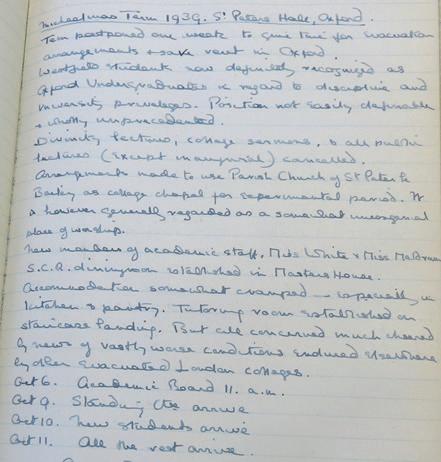 Michaelmas Term 1939. St Peters Hall, Oxford.
Term postponed one week to give time for evacuation
arrangements & save rent in Oxford.
Westfield students now definitely recognized as
Oxford Undergraduates in regard to discipline and
University privileges. Position not easily definable
& wholly unprecedented.
Divinity lectures, college sermons, & all public
lectures (except inaugural) cancelled.
Arrangements made to use Parish Church of St Peter le
Bailey as college chapel for experimental period. It
is however generally regarded as a somewhat uncongenial
place of worship.
New members of academic staff. Miss White & Miss
S.C.R. diningroom established in Masters House.
Accommodation somewhat cramped – especially in
kitchen & pantry. Tutoring room established on
staircase landing. But all concerned much cheered
by news of vastly worse conditions endured elsewhere
by other evacuated London colleges.
Oct 6. Academic Board 11. a.m.
Oct 9. Standing Ctee arrive
Oct 10. New students arrive
Oct 11. All the rest arrive.